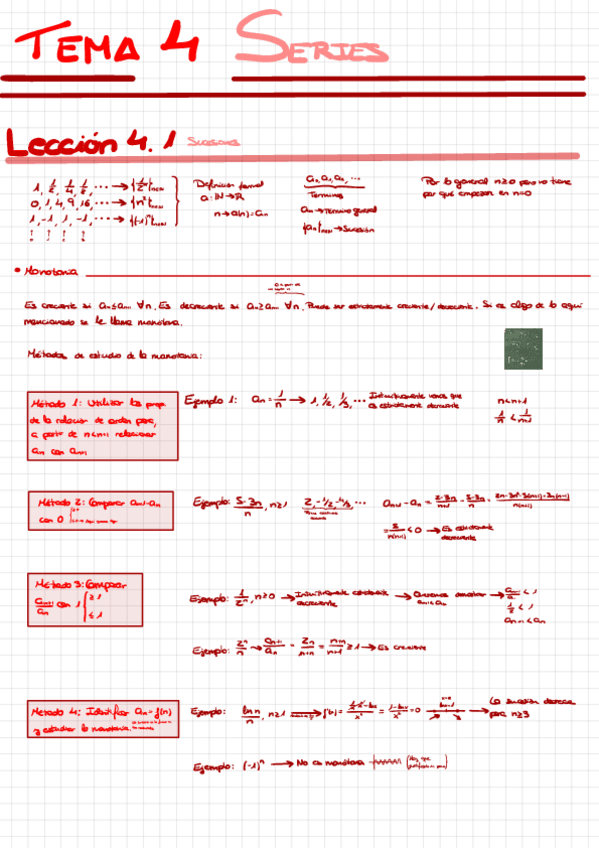 TEMA 4 SERIES
Lección 4.1 Sucesiones
1, 1/2, 1/4, 1/8, ... → {1/2ⁿ}n∈ℕ
0, 1, 4, 9, 16, ... → {n²}n∈ℕ
1, -1, 1, -1, ... → {(-1)ⁿ}n∈ℕ
Definición formal
a: ℕ → ℝ
n → a(n) = aₙ
a₀, a₁, a₂, ...
Términos
aₙ → Término general
{aₙ}n∈ℕ → Sucesión
Por lo general n≥0 pero no tiene
por qué empezar en n=0
• Monotonía
Es creciente si aₙ ≤ aₙ₊₁ ∀n. Es decreciente si aₙ ≥ aₙ₊₁ ∀n. Puede ser estrictamente creciente/decreciente. Si es algo de lo aquí
mencionado se le llama monótona.
Métodos de estudio de la monotonía:
Método 1: Utilizar las props
de la relación de orden para,
a partir de n<n+1 relacionar
aₙ con aₙ₊₁
Ejemplo 1: aₙ = 1/n → 1, 1/2, 1/3, ... Intuitivamente vemos que
es estrictamente decreciente
n<n+1
Método 2: Comparar aₙ₊₁-aₙ
con 0
Ejemplo: (5-3n)/n, n≥1
→ Es estrictamente
decreciente
Método 3: Comparar
aₙ₊₁/aₙ con 1 { ≥1
≤1
Ejemplo: 1/2ⁿ, n≥0 → Intuitivamente estrictamente
decreciente
→ Queremos demostrar
aₙ₊₁<aₙ
1/2 < 1
aₙ₊₁<aₙ
Ejemplo: 2ⁿ/n → aₙ₊₁/aₙ = 2n/(n+1)
≥1 → Es creciente
Método 4: Identificar aₙ=f(n)
y estudiar la monotonía
Ejemplo: ln n/n, n≥1
= (1-ln x)/x² = 0
La sucesión decrece
para n≥3
Ejemplo: (-1)ⁿ → No es monótona